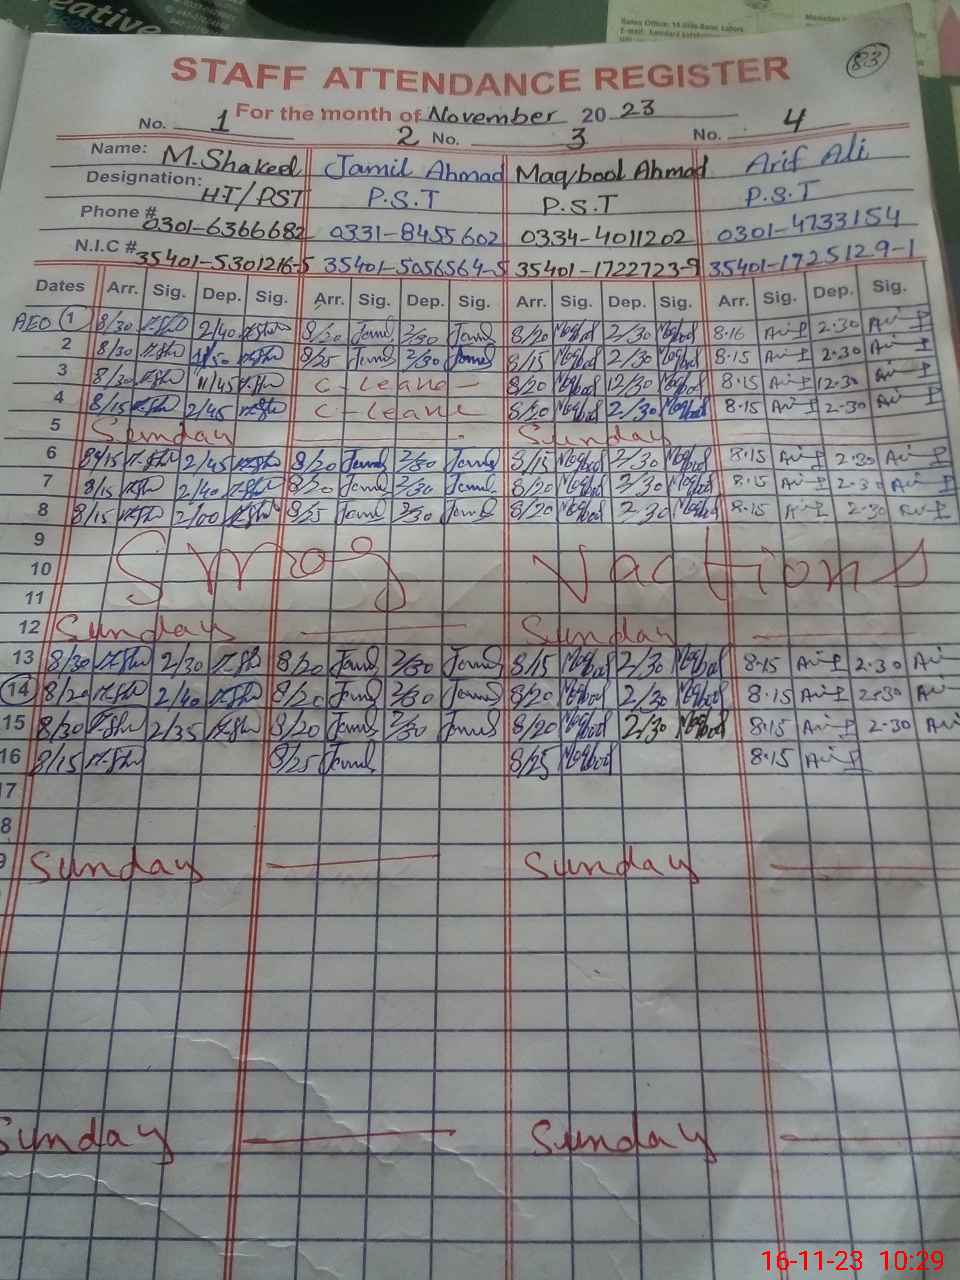 eative
STAFF ATTENDANCE REGISTER
83
For the month of November 20 23
No. 1 2 No. 3 No. 4
Name: M.Shakeel Jamil Ahmad Maqbool Ahmad Arif Ali
Designation: HT/PST P.S.T P.S.T P.S.T
Phone # 0301-6366682 0331-8455602 0334-4011202 0301-4733154
N.I.C # 35401-5301216-5 35401-5056564-5 35401-1722723-9 35401-1725129-1
Dates Arr. Sig. Dep. Sig. Arr. Sig. Dep. Sig. Arr. Sig. Dep. Sig. Arr. Sig. Dep. Sig.
AEO 1 8/30 2/40 8/20 Jamil 2/30 Jamil 8/20 Maqbool 2/30 Maqbool 8.16 Arif 2.30 Arif
2 8/30 8/25 Jamil 2/30 Jamil 8/15 Maqbool 2/30 Maqbool 8.15 Arif 2.30 Arif
3 8/30 C-Leave 8/20 Maqbool 12/30 Maqbool 8.15 Arif 12.30 Arif
4 8/15 2/45 C-Leave 8/20 Maqbool 2/30 Maqbool 8.15 Arif 2.30 Arif
5 Sunday Sunday
6 8/15 2/45 8/20 Jamil 2/30 Jamil 8/15 Maqbool 2/30 Maqbool 8.15 Arif 2.30 Arif
7 8/15 2/40 8/20 Jamil 2/30 Jamil 8/20 Maqbool 2/30 Maqbool 8.15 Arif 2.30 Arif
8 8/15 2/00 8/25 Jamil 2/30 Jamil 8/20 Maqbool 2/30 Maqbool 8.15 Arif 2.30 Arif
9
10 Smog Vactions
11
12 Sunday Sunday
13 8/30 2/30 8/20 Jamil 2/30 Jamil 8/15 Maqbool 2/30 Maqbool 8.15 Arif 2.30 Ari
14 8/20 2/40 8/20 Jamil 2/30 Jamil 8/20 Maqbool 2/30 Maqbool 8.15 Arif 2.30 Ari
15 8/30 2/35 8/20 Jamil 2/30 Jamil 8/20 Maqbool 2/30 Maqbool 8.15 Arif 2.30 Ari
16 8/15 8/25 Jamil 8/25 Maqbool 8.15 Arif
17
8
9 Sunday Sunday
Sunday Sunday
16-11-23 10:29